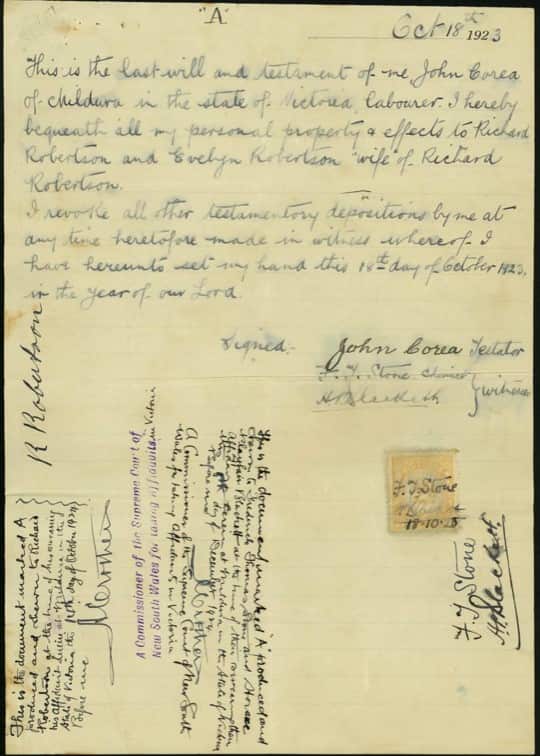 "A"
Oct 18th 1923
This is the last will and testament of me John Corea
of Mildura in the state of Victoria, labourer. I hereby
bequeath all my personal property & effects to Richard
Robertson and Evelyn Robertson "wife" of Richard
Robertson.
I revoke all other testamentory depositions by me at
any time heretofore made in witness whereof I
have hereunto set my hand this 18th day of October 1923.
in the year of our Lord.
Signed.
John Corea Testator
F. T. Stone
witness
R Robertson
This is the document marked A
produced and shewn to Richard
Robertson at the time of swearing
his Affidavit at Mildura in the
State of Victoria this day of October 1924
Before me
A Commissioner of the Supreme Court of
New South Wales for taking Affidavits in Victoria
This is the document marked "A" produced and
shewn to Frederick Thomas Stone and Horace
Blackett at the time of their swearing their
Affidavit at Mildura in the State of Victoria
this day of December 1924
Before me
A Commissioner of the Supreme Court of New South
Wales for taking Affidavits in Victoria
F. T. Stone
18-10-23
F. T. Stone
H Blackett